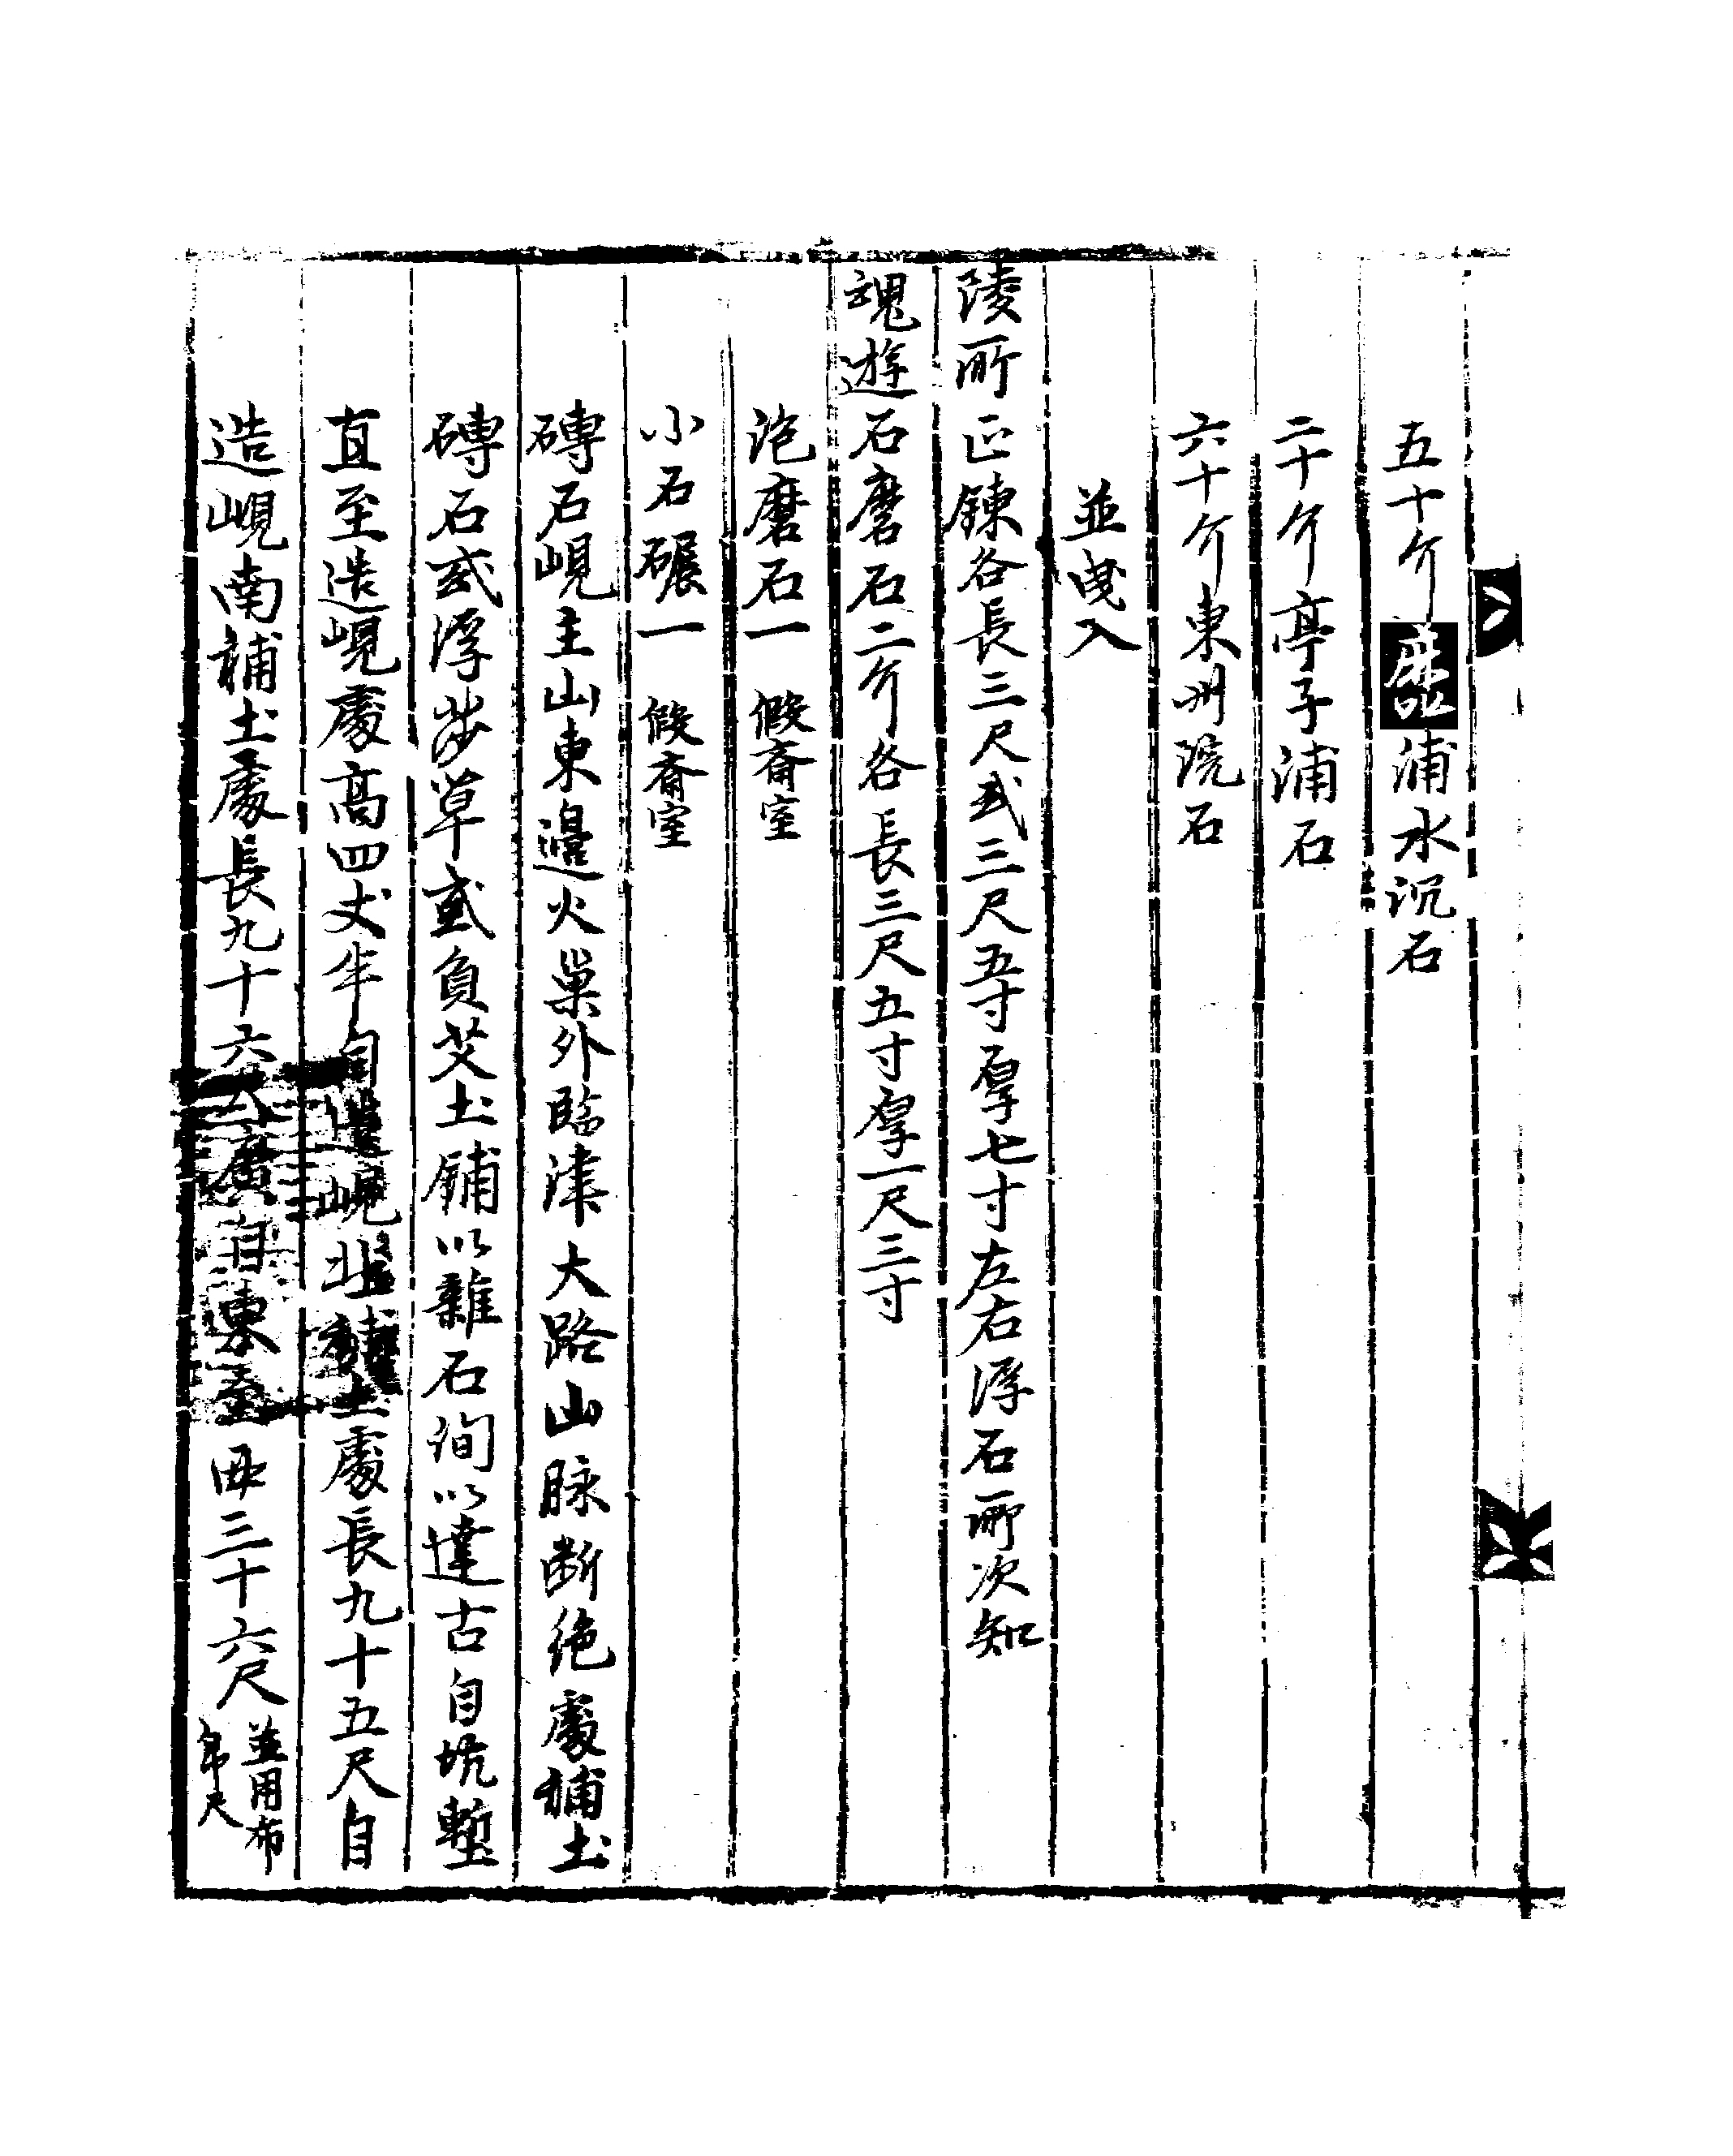 五十介浦水沉石
二十介亭子浦石
六十介東州院石
並曳入
陵所正鍊各長三尺或三尺五寸厚七寸左右浮石所次知
魂遊石磨石二介各長三尺五寸厚一尺三寸
泡磨石一 假齋室
小石碾一 假齋室
磚石峴主山東邊火巢外臨津大路山脉断絶處補土
磚石或浮莎草或負艾土鋪以雜石徇以達古自坑塹
直至造峴處高四丈半自邊峴北補土處長九十五尺自
造峴南補土處長九十六尺廣自東至西三十六尺並用布
帛尺